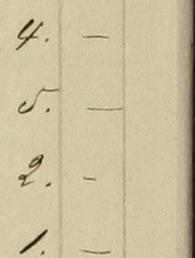 4. —
5. —
2. -
1. —